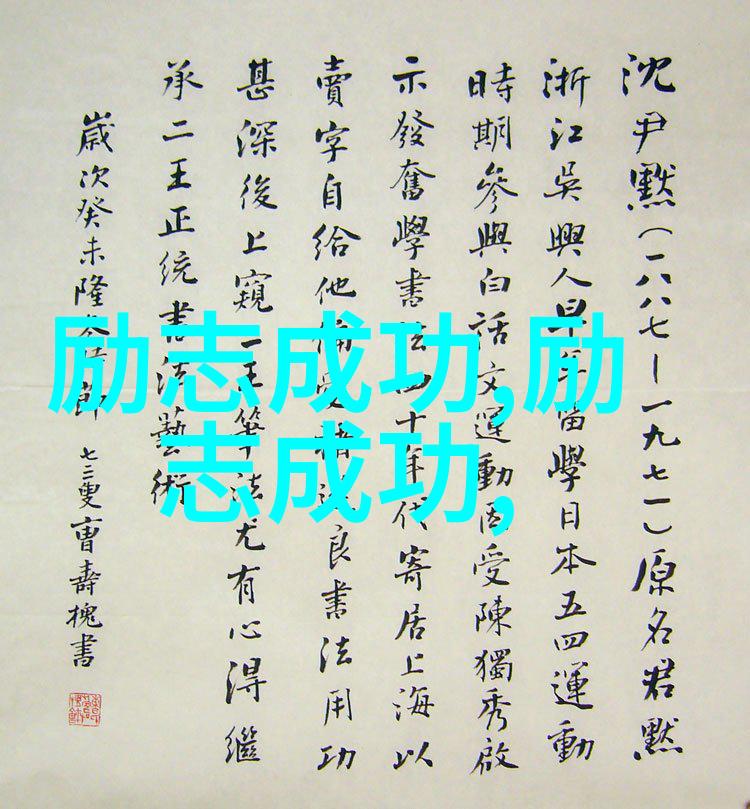 沈尹默(一八八七—一九七一)原名君默
浙江吳興人早年留學日本五四運動
時期參與白話文運動因受陳獨秀啟
示發奮學書法四十年代寄居上海以
賣字自給他受良書法用功
甚深後上窺二王筆法尤有心得繼
承二王正統書法藝術
歲次癸未隆冬佳節
七三叟曹壽槐書
励志成功,励
志成功,